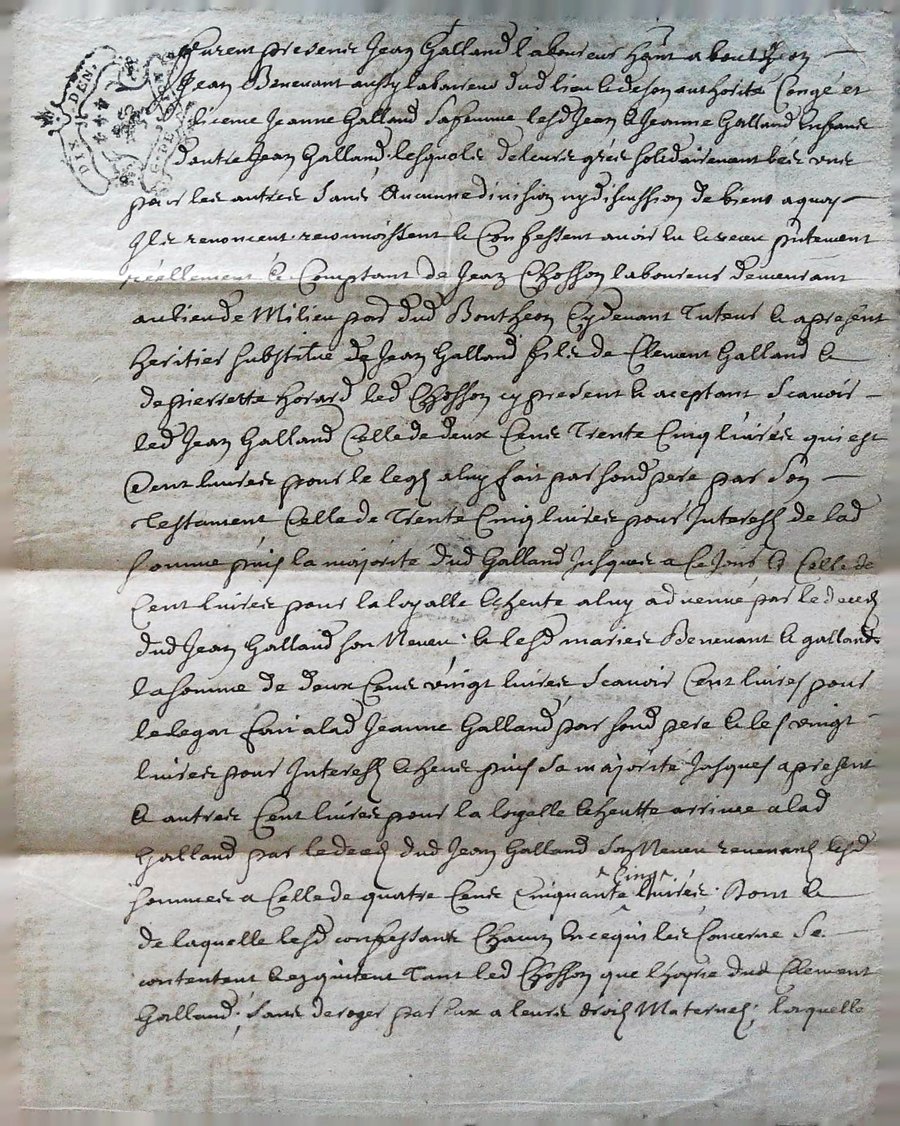 DIX. DEN.
furent presens Jean Galland laboureur hant a bontheon
Jean Benevant aussy laboureur dud lieu & de son authorité Congé et
licence Jeanne Galland sa femme lesd Jean & Jeanne Galland enfans
dautre Jean Galland, lesquels de leurs grés solidairement les uns
pour les autres sans aucune division ny discussion de biens a quoy
ils renoncent reconnoissent & Confessent avoir eu & receu pntement
réellement & Comptant de Jean Chosson laboureur demeurant
au lieu de Milieu par dud Bontheon Cydevant Tuteur & apresent
heritier substitué de Jean Galland fils de Clement Galland &
de pierrette horard led Chosson cy present & aceptant Scavoir
led Jean Galland Celle de deux Cens Trente Cinq livres qui est
Cent livres pour le legs a luy fait par sond pere par Son
Testament Celle de Trente Cinq livres pour Interests de lad
somme puis la majorité dud Galland Jusques a Ce Jour Et Celle de
Cent livres pour la loyalle Echeute a luy advenue par le deceds
dud Jean Galland son Neveu. & lesd mariés Benevant & galland
la somme de deux Cens vingt livres Scavoir Cent livres pour
le legat fait a lad Jeanne Galland par sond pere & les vingt
livres pour Interests Echeus puis Sa majorité Jusques apresent
& autres Cent livres pour la loyalle Echeutte arrivee a lad
Galland par le deceds dud Jean Galland Son Neveu revenans lesd
sommes a Celle de quatre Cens Cinquante Cinq livres. Dont &
de laquelle lesd confessants Chacun En ce qui les Concerne Se
contentent & quittent Tant led Chosson que lhoirie dud Clement
Galland, Sans deroger par Eux a leurs droits Maternels, laquelle